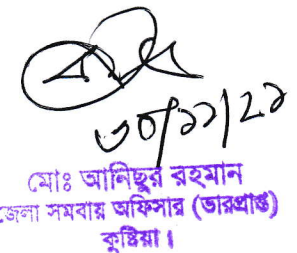 ৩০/১১/২১
মোঃ আনিছুর রহমান
জেলা সমবায় অফিসার (ভারপ্রাপ্ত)
কুষ্টিয়া।